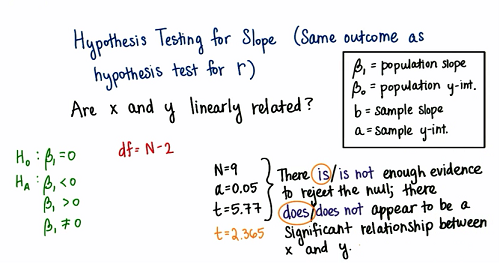 Hypothesis Testing for Slope (Same outcome as
hypothesis test for r)
Are x and y linearly related?
β₁ = population slope
β₀ = population y-int.
b = sample slope
a = sample y-int.
H₀ : β₁ = 0
Hₐ : β₁ < 0
β₁ > 0
β₁ ≠ 0
df = N-2
N=9
α=0.05
t=5.77
t=2.365
There is/is not enough evidence
to reject the null; there
does/does not appear to be a
significant relationship between
x and y.